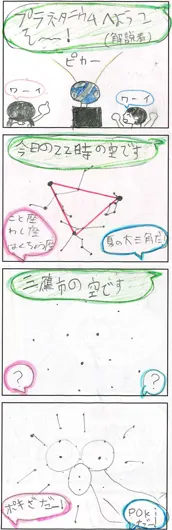 プラネタリウムへようこ
そ〜！
(解説者)
ピカー
ワーイ
ワーイ
今日の22時の空です
こと座
わし座
はくちょう座
夏の大三角だ
三鷹市の空です
？
？
ポキぎだー！
POKi
だー！